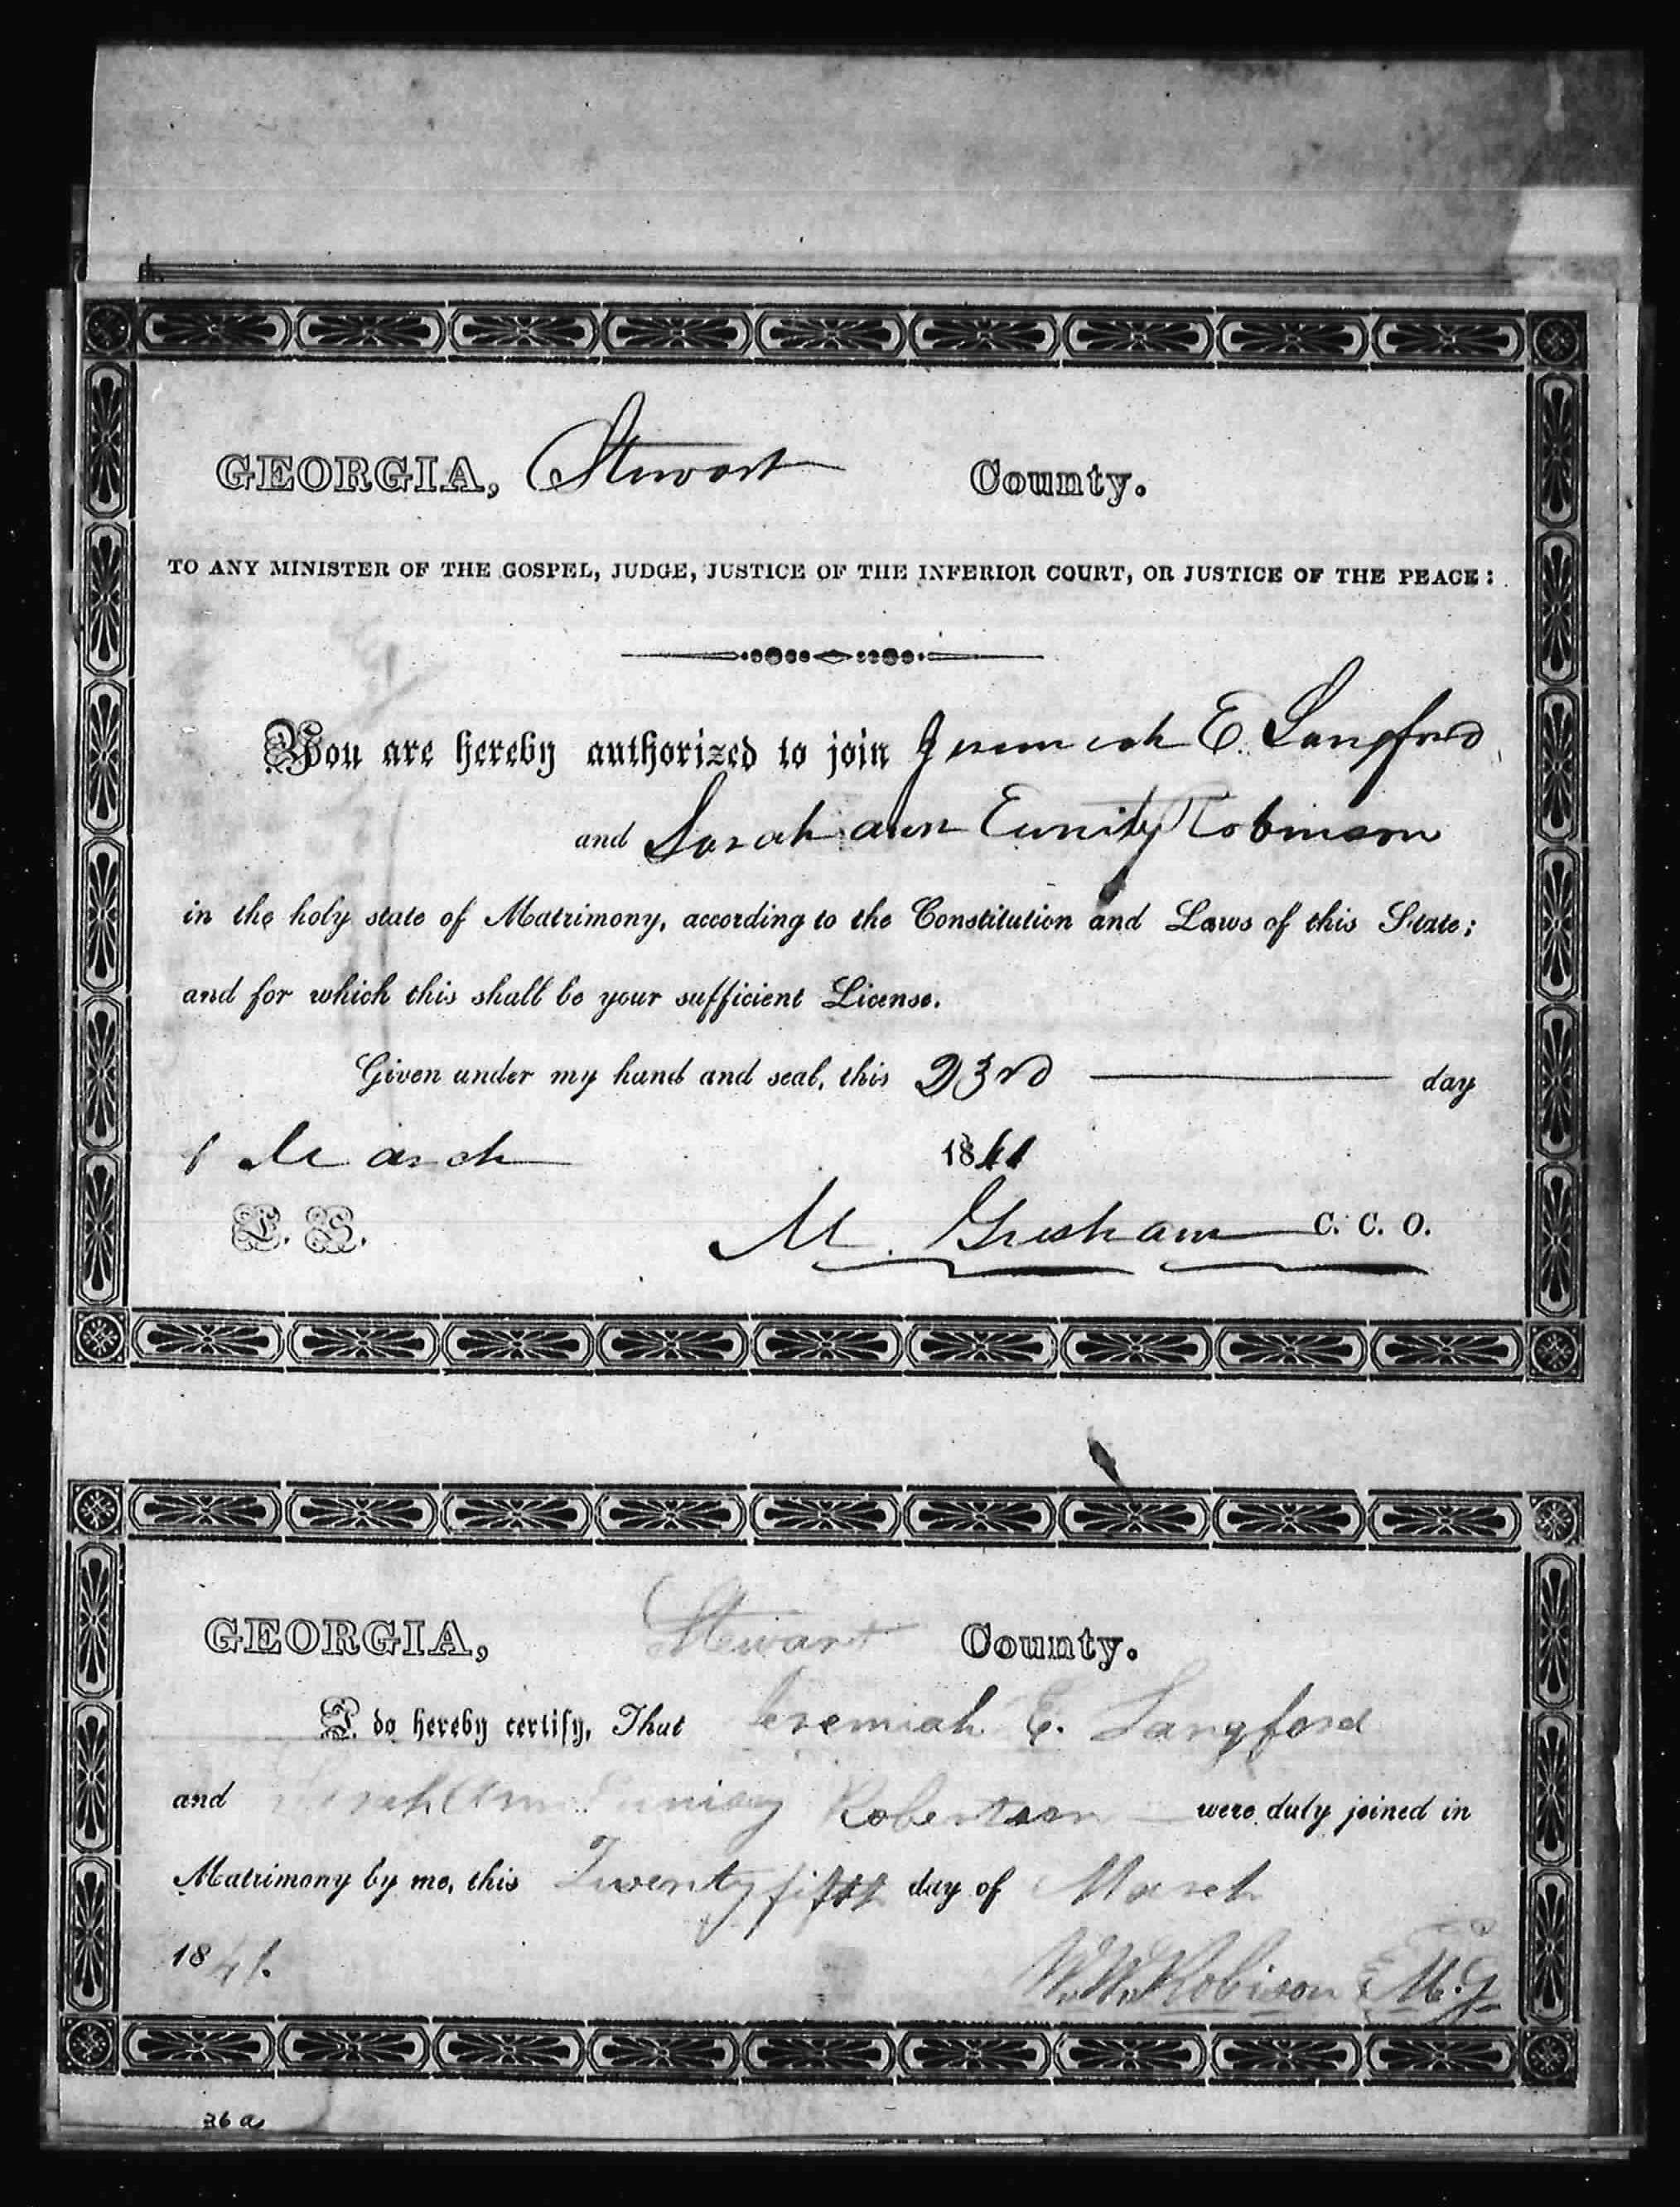 GEORGIA, Stewart County.
TO ANY MINISTER OF THE GOSPEL, JUDGE, JUSTICE OF THE INFERIOR COURT, OR JUSTICE OF THE PEACE:
You are hereby authorized to join Jeremiah E. Langford
and Sarah ann Eunity Robinson
in the holy state of Matrimony, according to the Constitution and Laws of this State;
and for which this shall be your sufficient License.
Given under my hand and seal, this 23rd day
March 1841
L. S. M. Gresham C. C. O.
GEORGIA, Stewart County.
I do hereby certify, That Jeremiah E. Langford
and Sarah Ann Robertson were duly joined in
Matrimony by me, this Twenty fifth day of March
1841. W. W. Robison M. G.
36 a